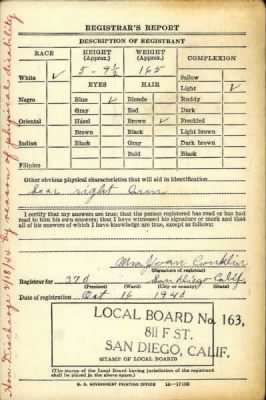 REGISTRAR'S REPORT
DESCRIPTION OF REGISTRANT
RACE HEIGHT (Approx.) WEIGHT (Approx.) COMPLEXION
White ✓ 5-9½ 165 Sallow
EYES HAIR Light ✓
Negro Blue ✓ Blonde Ruddy
Gray Red Dark
Oriental Hazel Brown ✓ Freckled
Brown Black Light brown
Indian Black Gray Dark brown
Bald Black
Filipino
Other obvious physical characteristics that will aid in identification
Scar right arm
I certify that my answers are true; that the person registered has read or has had read to him his own answers; that I have witnessed his signature or mark and that all of his answers of which I have knowledge are true, except as follows:
Mrs Joan Conklin
(Signature of registrar)
Registrar for 270 San Diego Calif.
(Precinct) (Ward) (City or county) (State)
Date of registration Oct 16 1940
LOCAL BOARD No. 163,
811 F ST.
SAN DIEGO, CALIF.
(STAMP OF LOCAL BOARD)
(The stamp of the Local Board having jurisdiction of the registrant shall be placed in the above space.)
U. S. GOVERNMENT PRINTING OFFICE 16-17105
Hon Discharge 9/18/44 By reason of physical disability